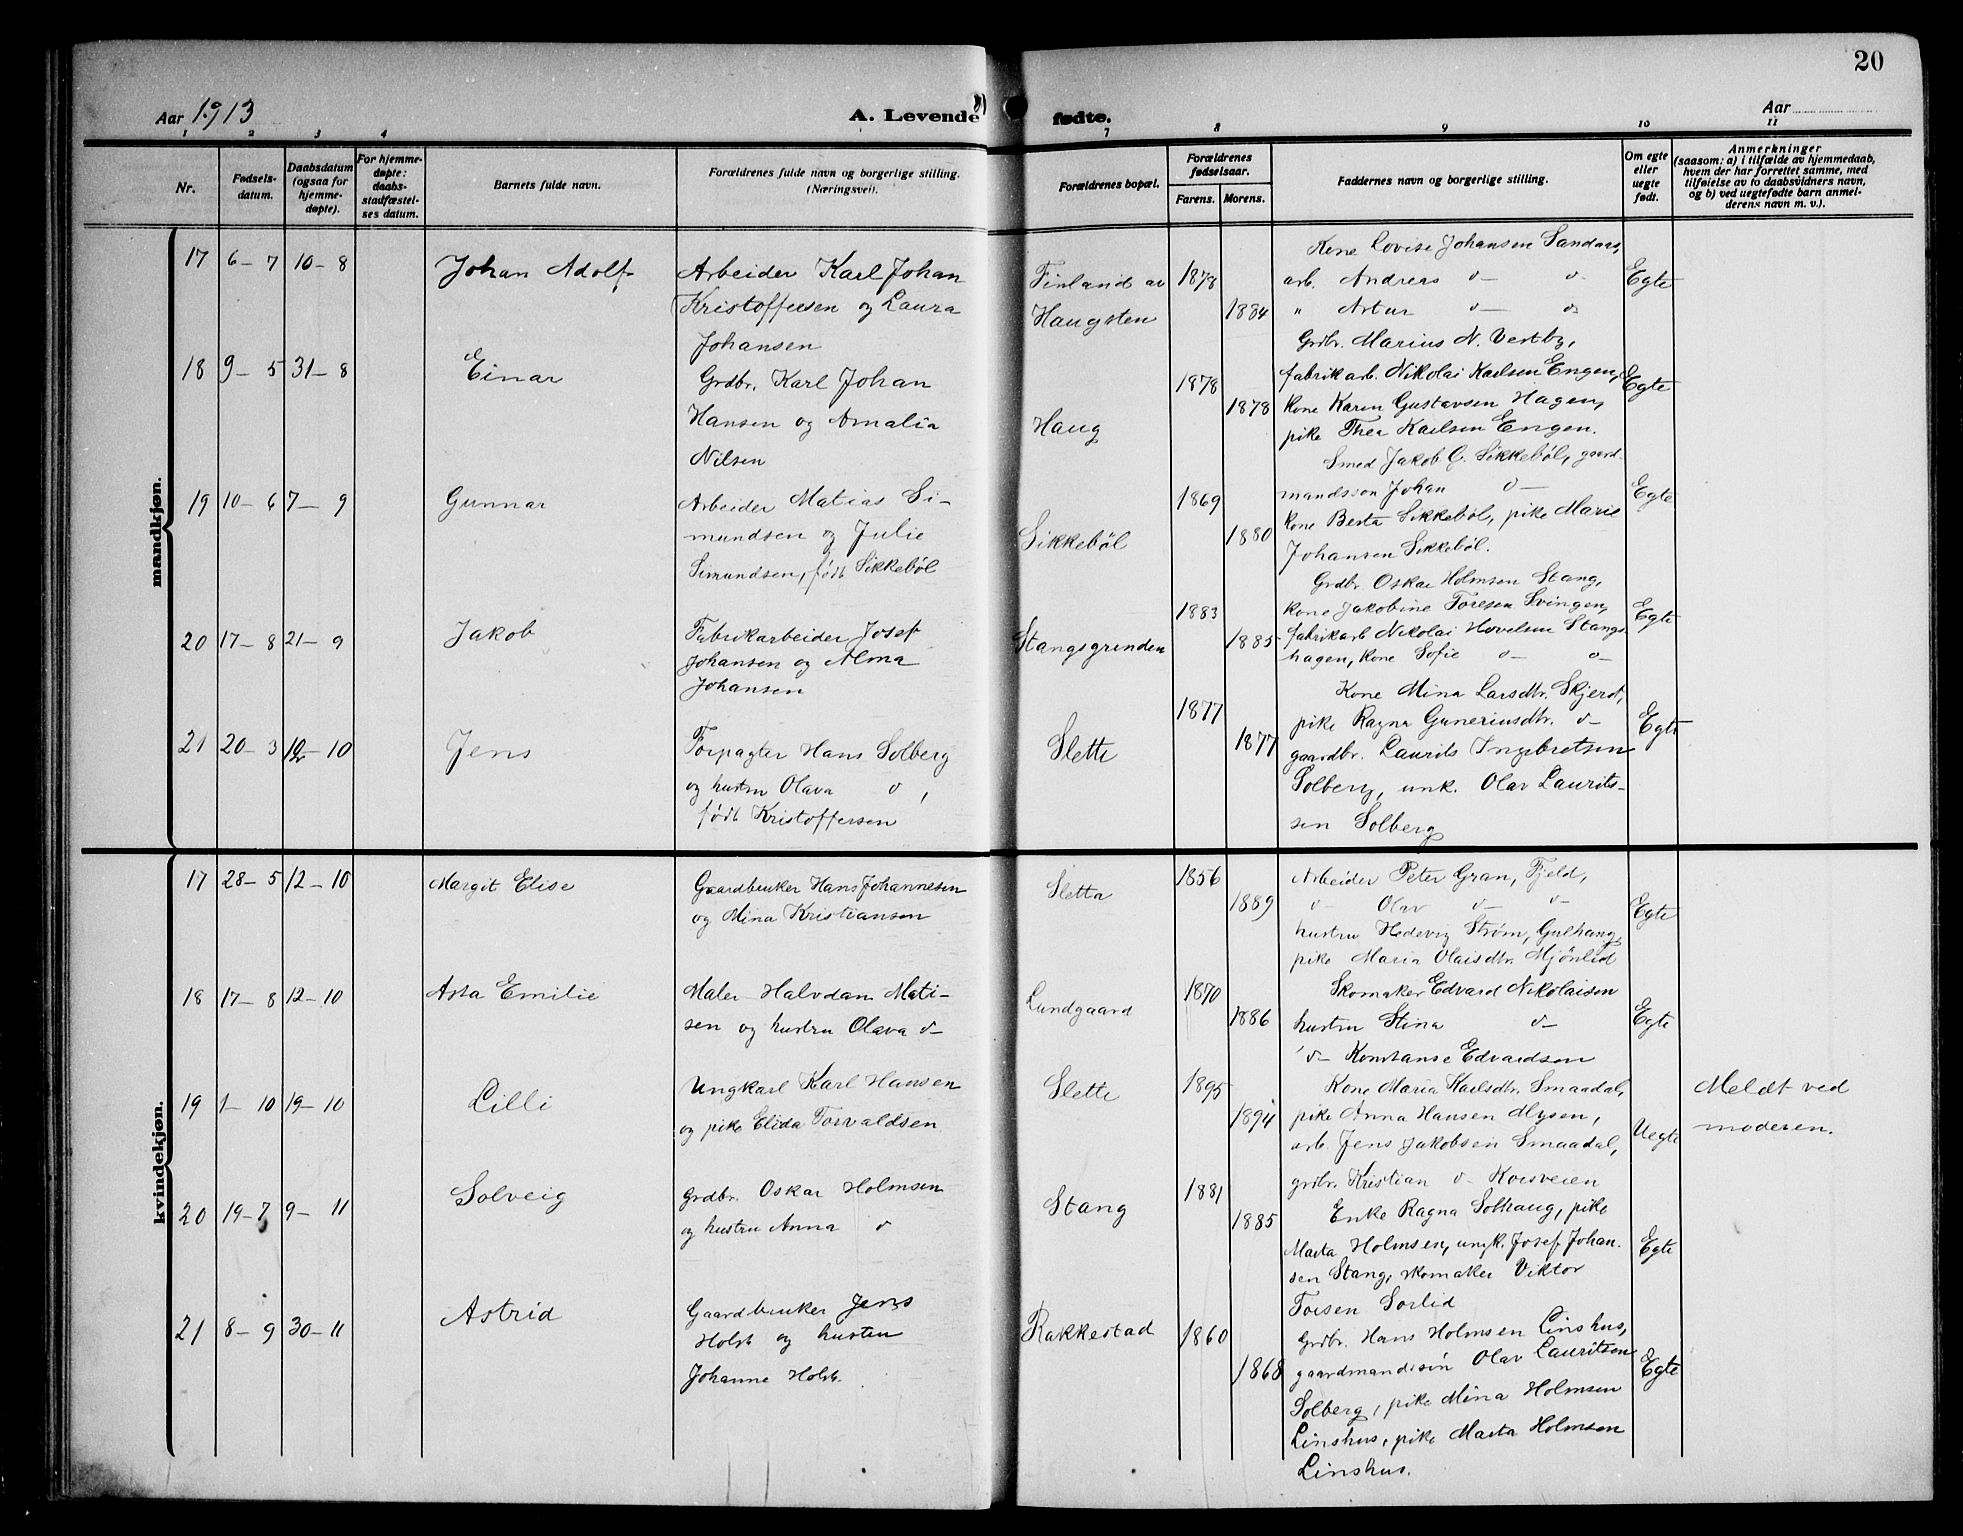 20
Aar 1913
A. Levende
fødte.
Aar
1 2 3 4 7 8 9 10 11
Nr.
Fødsels-
datum.
Daabsdatum
(ogsaa for
hjemme-
døpte).
For hjemme-
døpte:
daabs-
stadfæstel-
ses datum.
Barnets fulde navn.
Forældrenes fulde navn og borgerlige stilling.
(Næringsvei).
Forældrenes bopæl.
Forældrenes
fødselsaar.
Farens. Morens.
Faddernes navn og borgerlige stilling.
Om egte
eller
uegte
født.
Anmerkninger
(saasom: a) i tilfælde av hjemmedaab,
hvem der har forrettet samme, med
tilføielse av to daabsvidners navn,
og b) ved uegtefødte barn anmel-
derens navn m. v.).
mandkjøn.
17 6-7 10-8 Johan Adolf
Arbeider Karl Johan
Kristoffersen og Laura
Johansen
Finland av
Haugsten
1878
1884
Kone Lovise Johansen Sandaas,
arb. Andreas d- d
" Artur d- d
Grdbr. Marius N. Vestby,
Egte
18 9-5 31-8 Einar
Grdbr. Karl Johan
Hansen og Amalia
Nilsen
Haug
1878
1878
fabrikarb. Nikolai Karlsen Engen,
kone Karen Gustavsen Hagen,
pike Thea Karlsen Engen.
Egte
19 10-6 7-9 Gunnar
Arbeider Matias Si-
mundsen og Julie
Simundsen, født Sikkebøl
Sikkebøl
1869
1880
Smed Jakob G. Sikkebøl, gaard-
mandssøn Johan d-
kone Berta Sikkebøl, pike Marie
Johansen Sikkebøl.
Egte
20 17-8 21-9 Jakob
Fabrikarbeider Josef
Johansen og Alma
Johansen
Stangsgrinden
1883
1885
Grdbr. Oskar Holmsen Stang,
kone Jakobine Toresen Svingen,
fabrikarb Nikolai Hovelsen Stangs-
hagen, kone Sofie d- d-
Egte
21 20-3 12-10 Jens
Forpagter Hans Solberg
og hustru Olava d,
født Kristoffersen
Slette
1877
1877
Kone Mina Larsdtr. Skjerøt,
pike Ragna Guneriusdtr. d-
gaardbr. Laurits Ingebretsen
Solberg, unk. Olav Laurits-
sen Solberg
Egte
kvindekjøn.
17 28-5 12-10 Margit Elise
Gaardbruker Hans Johannesen
og Mina Kristiansen
Sletta
1856
1889
Arbeider Peter Gran, Fjeld,
d- Olav d- d-
hustru Hedevig Strøm, Gulhaug,
pike Maria Olaisdtr. Mjönlid
Egte
18 17-8 12-10 Asta Emilie
Maler Halvdan Mati-
sen og hustru Olava d-
Lundgaard
1870
1886
Skomaker Edvard Nikolaisen
hustru Stina d-
d- Konstanse Edvardsen
Egte
19 1-10 19-10 Lilli
Ungkarl Karl Hansen
og pike Elida Torvaldsen
Slette
1895
1894
Kone Maria Karlsdtr. Smaadal,
pike Anna Hansen Mysen,
arb. Jens Jakobsen Smaadal,
grdbr. Kristian d- Korsveien
Uegte
Meldt ved
moderen.
20 19-7 9-11 Solveig
Grdbr. Oskar Holmsen
og hustru Anna d
Stang
1881
1885
Enke Ragna Solhaug, pike
Marta Holmsen, ungk. Josef Johan-
sen Stang, skomaker Viktor
Torsen Sorlid
Egte
21 8-9 30-11 Astrid
Gaardbruker Jens
Holst og hustru
Johanne Holst.
Rakkestad
1860
1868
Grdbr. Hans Holmsen Linshus,
gaardmandssøn Olav Lauritsen
Solberg, pike Mina Holmsen
Linshus, pike Marta Holmsen
Linshus.
Egte